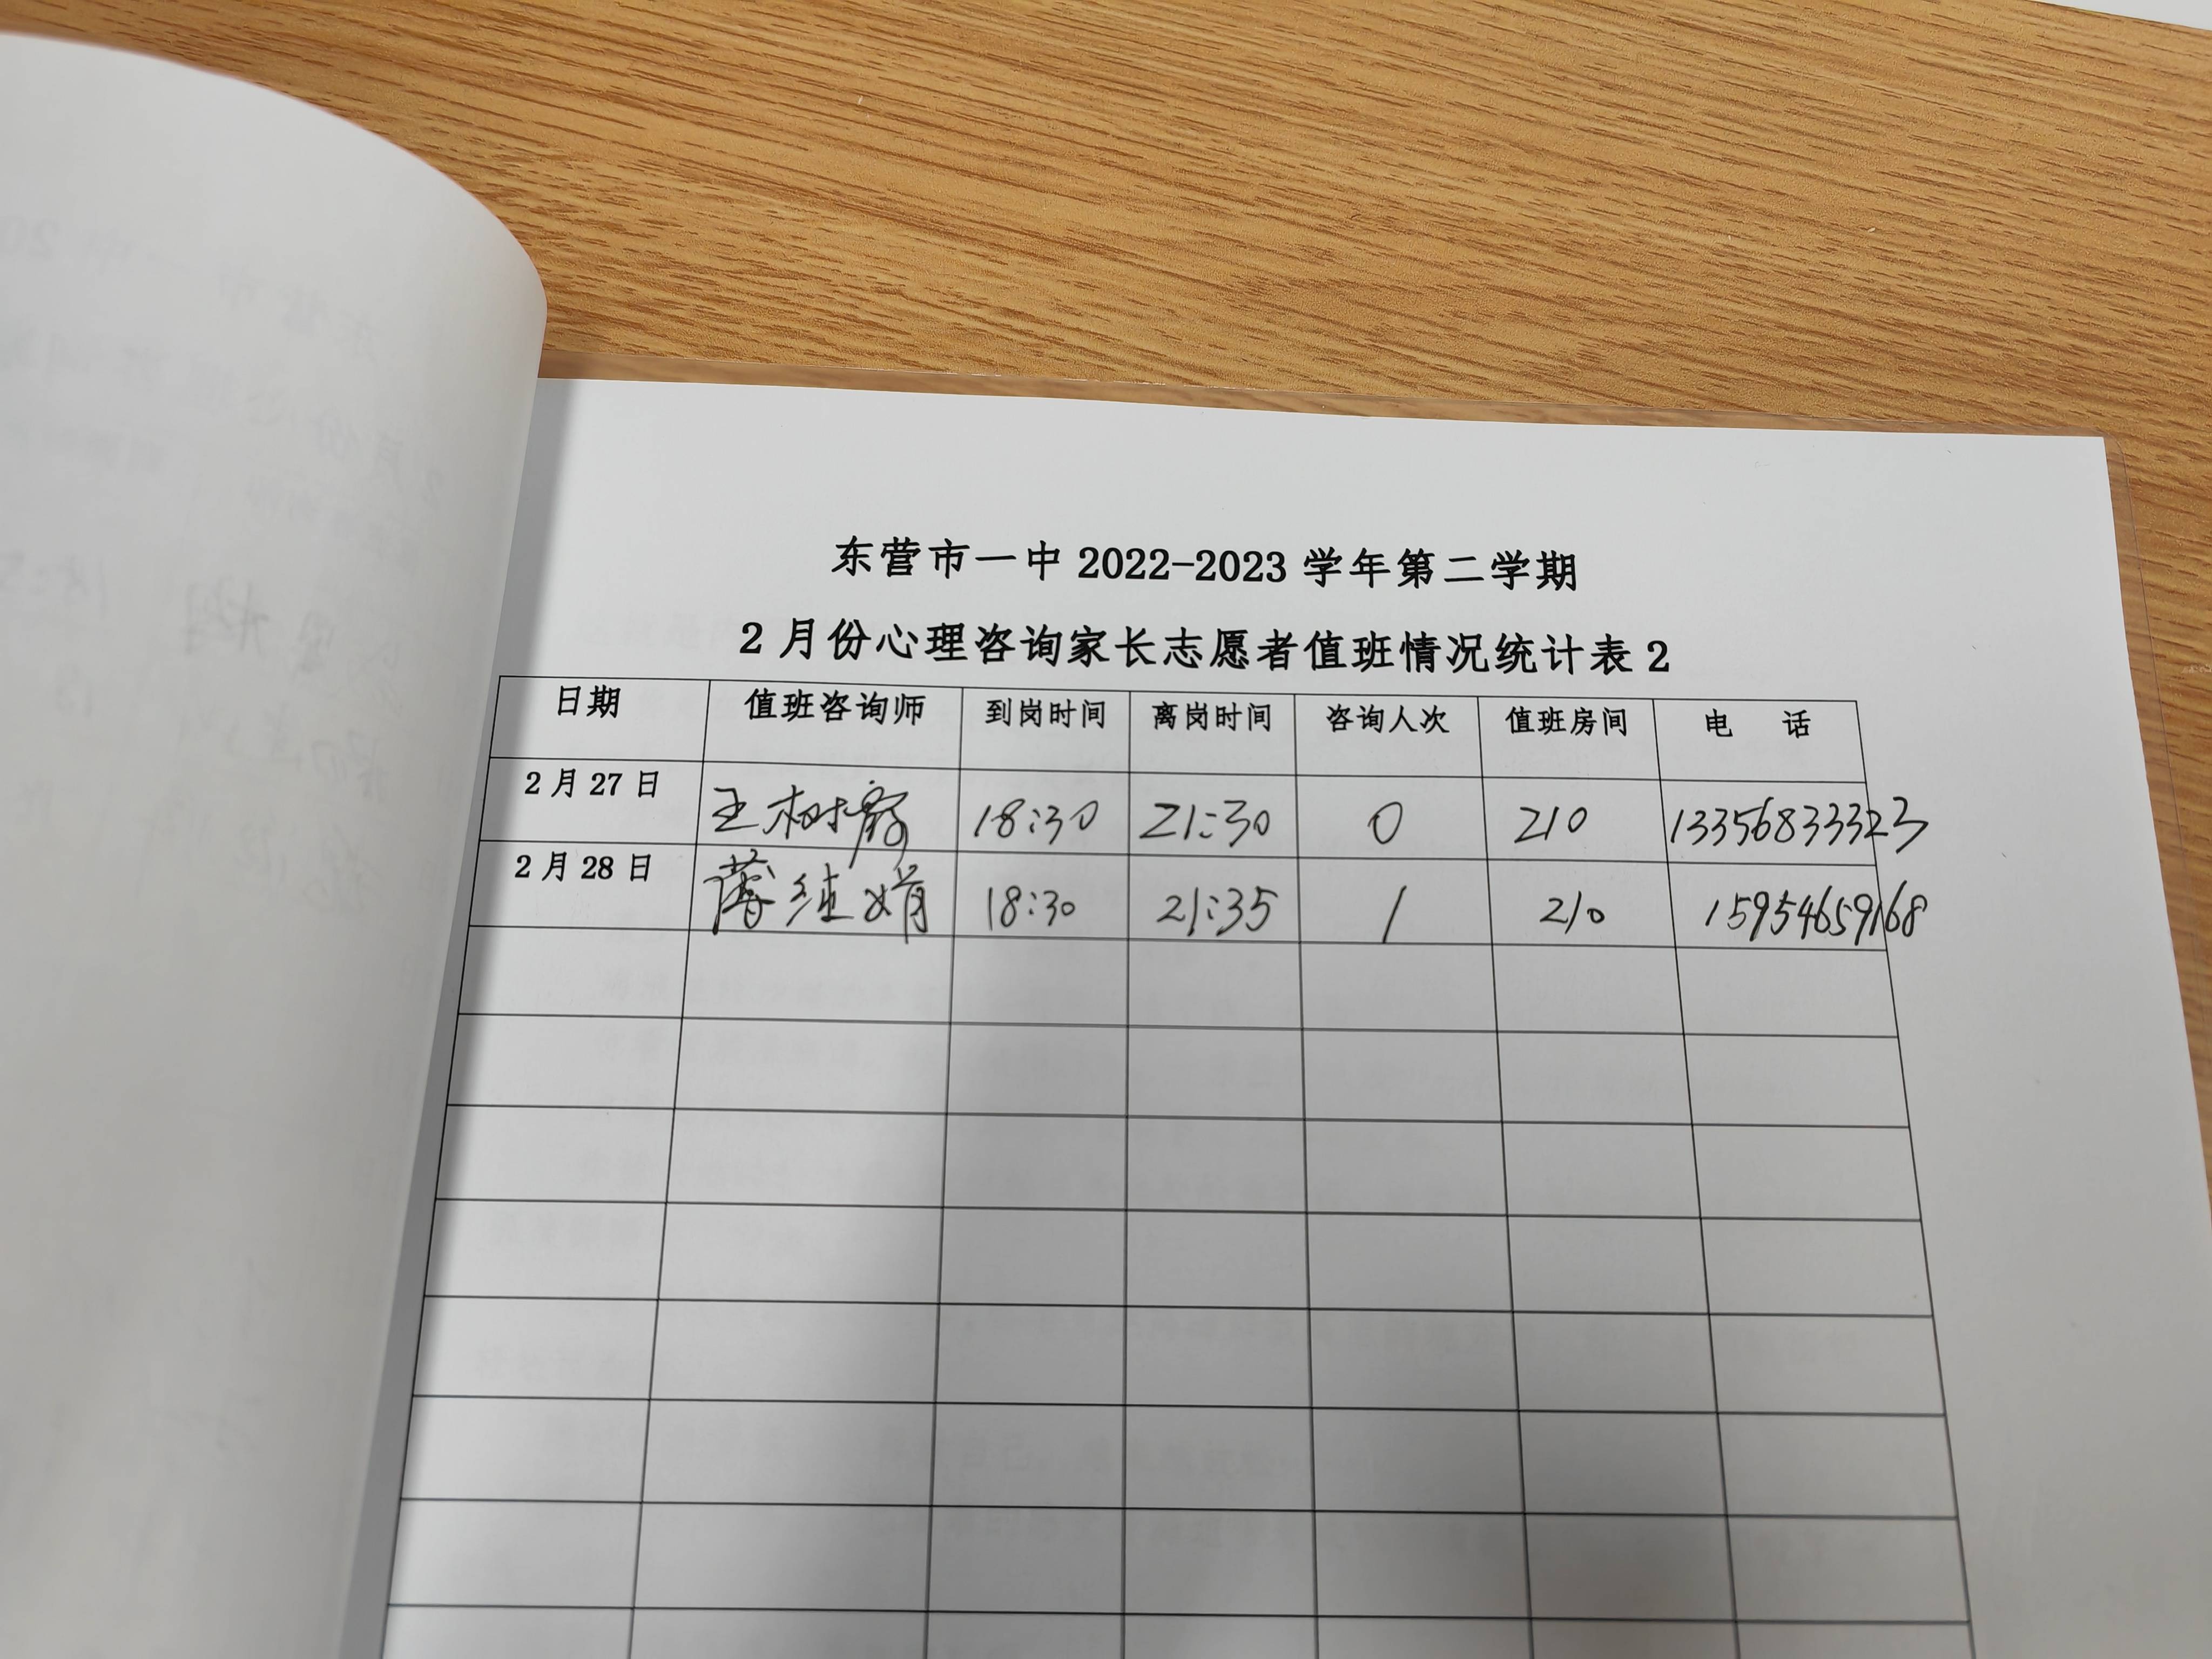 东营市一中 2022-2023 学年第二学期
2 月份心理咨询家长志愿者值班情况统计表 2
日期 值班咨询师 到岗时间 离岗时间 咨询人次 值班房间 电 话
2 月 27 日 王树 18:30 21:30 0 210 13356833323
2 月 28 日 继娟 18:30 21:35 1 210 15954659168